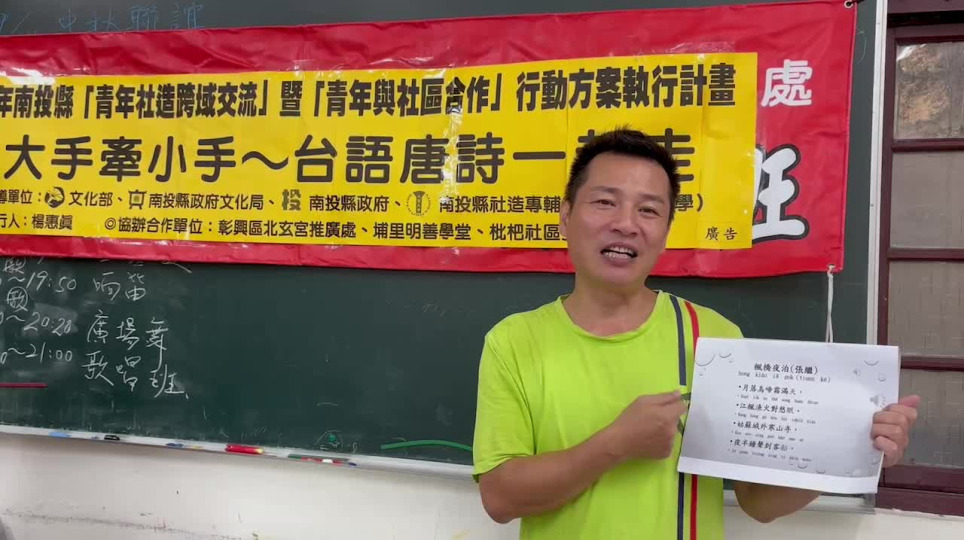 中秋聯誼
處
年南投縣「青年社造跨域交流」暨「青年與社區合作」行動方案執行計畫
大手牽小手～台語唐詩一起走
導單位：文化部、南投縣政府文化局、南投縣政府、南投縣社造專輔 學）
行人：楊惠眞 ◎協辦合作單位：彰興區北玄宮推廣處、埔里明善學堂、枇杷社區
廣告
班
~19:50
~20:20 廣場舞
~21:00 歌唱班
楓橋夜泊(張繼)
•月落烏啼霜滿天，
•江楓漁火對愁眠，
•姑蘇城外寒山寺，
•夜半鐘聲到客船，